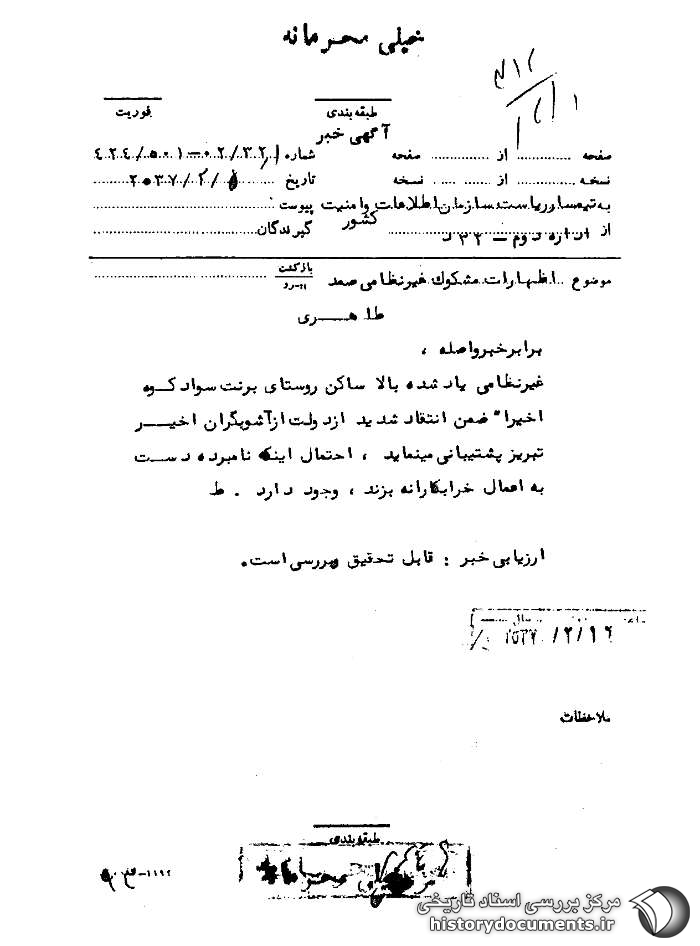 خیلی محرمانه
طبقه‌بندی
فوریت
آگهی خبر
صفحه .......... از .......... صفحه
شماره ۴۲۴/۵۰۱-۰۲/۳۲
نسخه .......... از .......... نسخه
تاریخ ۲۵۳۷/۲/
به تیمسار ریاست سازمان اطلاعات و امنیت کشور
پیوست
از اداره دوم - ۳۲ د
گیرندگان
موضوع اظهارات مشکوک غیرنظامی صمد
بازگشت
طاهری
برابر خبر واصله ،
غیرنظامی یاد شده بالا ساکن روستای برنت سوادکوه
اخیرا" ضمن انتقاد شدید از دولت از آشوبگران اخیر
تبریز پشتیبانی مینماید ، احتمال اینکه نامبرده دست
به اعمال خرابکارانه بزند ، وجود دارد . ط
ارزیابی خبر : قابل تحقیق و بررسی است.
سال
/۲/۱۶
ملاحظات
طبقه‌بندی
مرکز بررسی اسناد تاریخی
historydocuments.ir